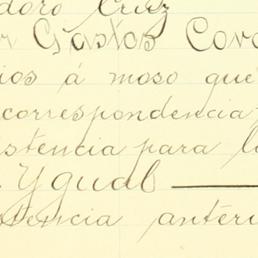 doro Cruz
r Gastos Corr
ios á moso que
correspondencia
istencia para l
Ygual
stencia anteri